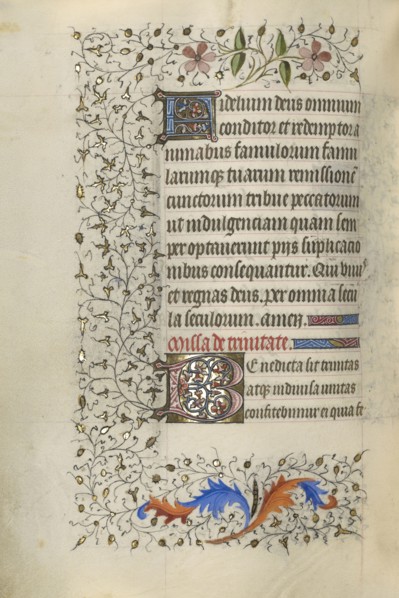 Fidelium deus omnium
conditor et redemptor a
nimabus famulorum famu
larumq; tuarum remissionē
cunctorum tribue peccatorum
ut indulgenciam quam sem
per optauerunt piis suplicacio
nibus consequantur. Qui viuis
et regnas deus. per omnia secu
la seculorum. amen.
Missa de trinitate.
Benedicta sit trinitas
atq; indiuisa unitas
confitebimur ei quia fe